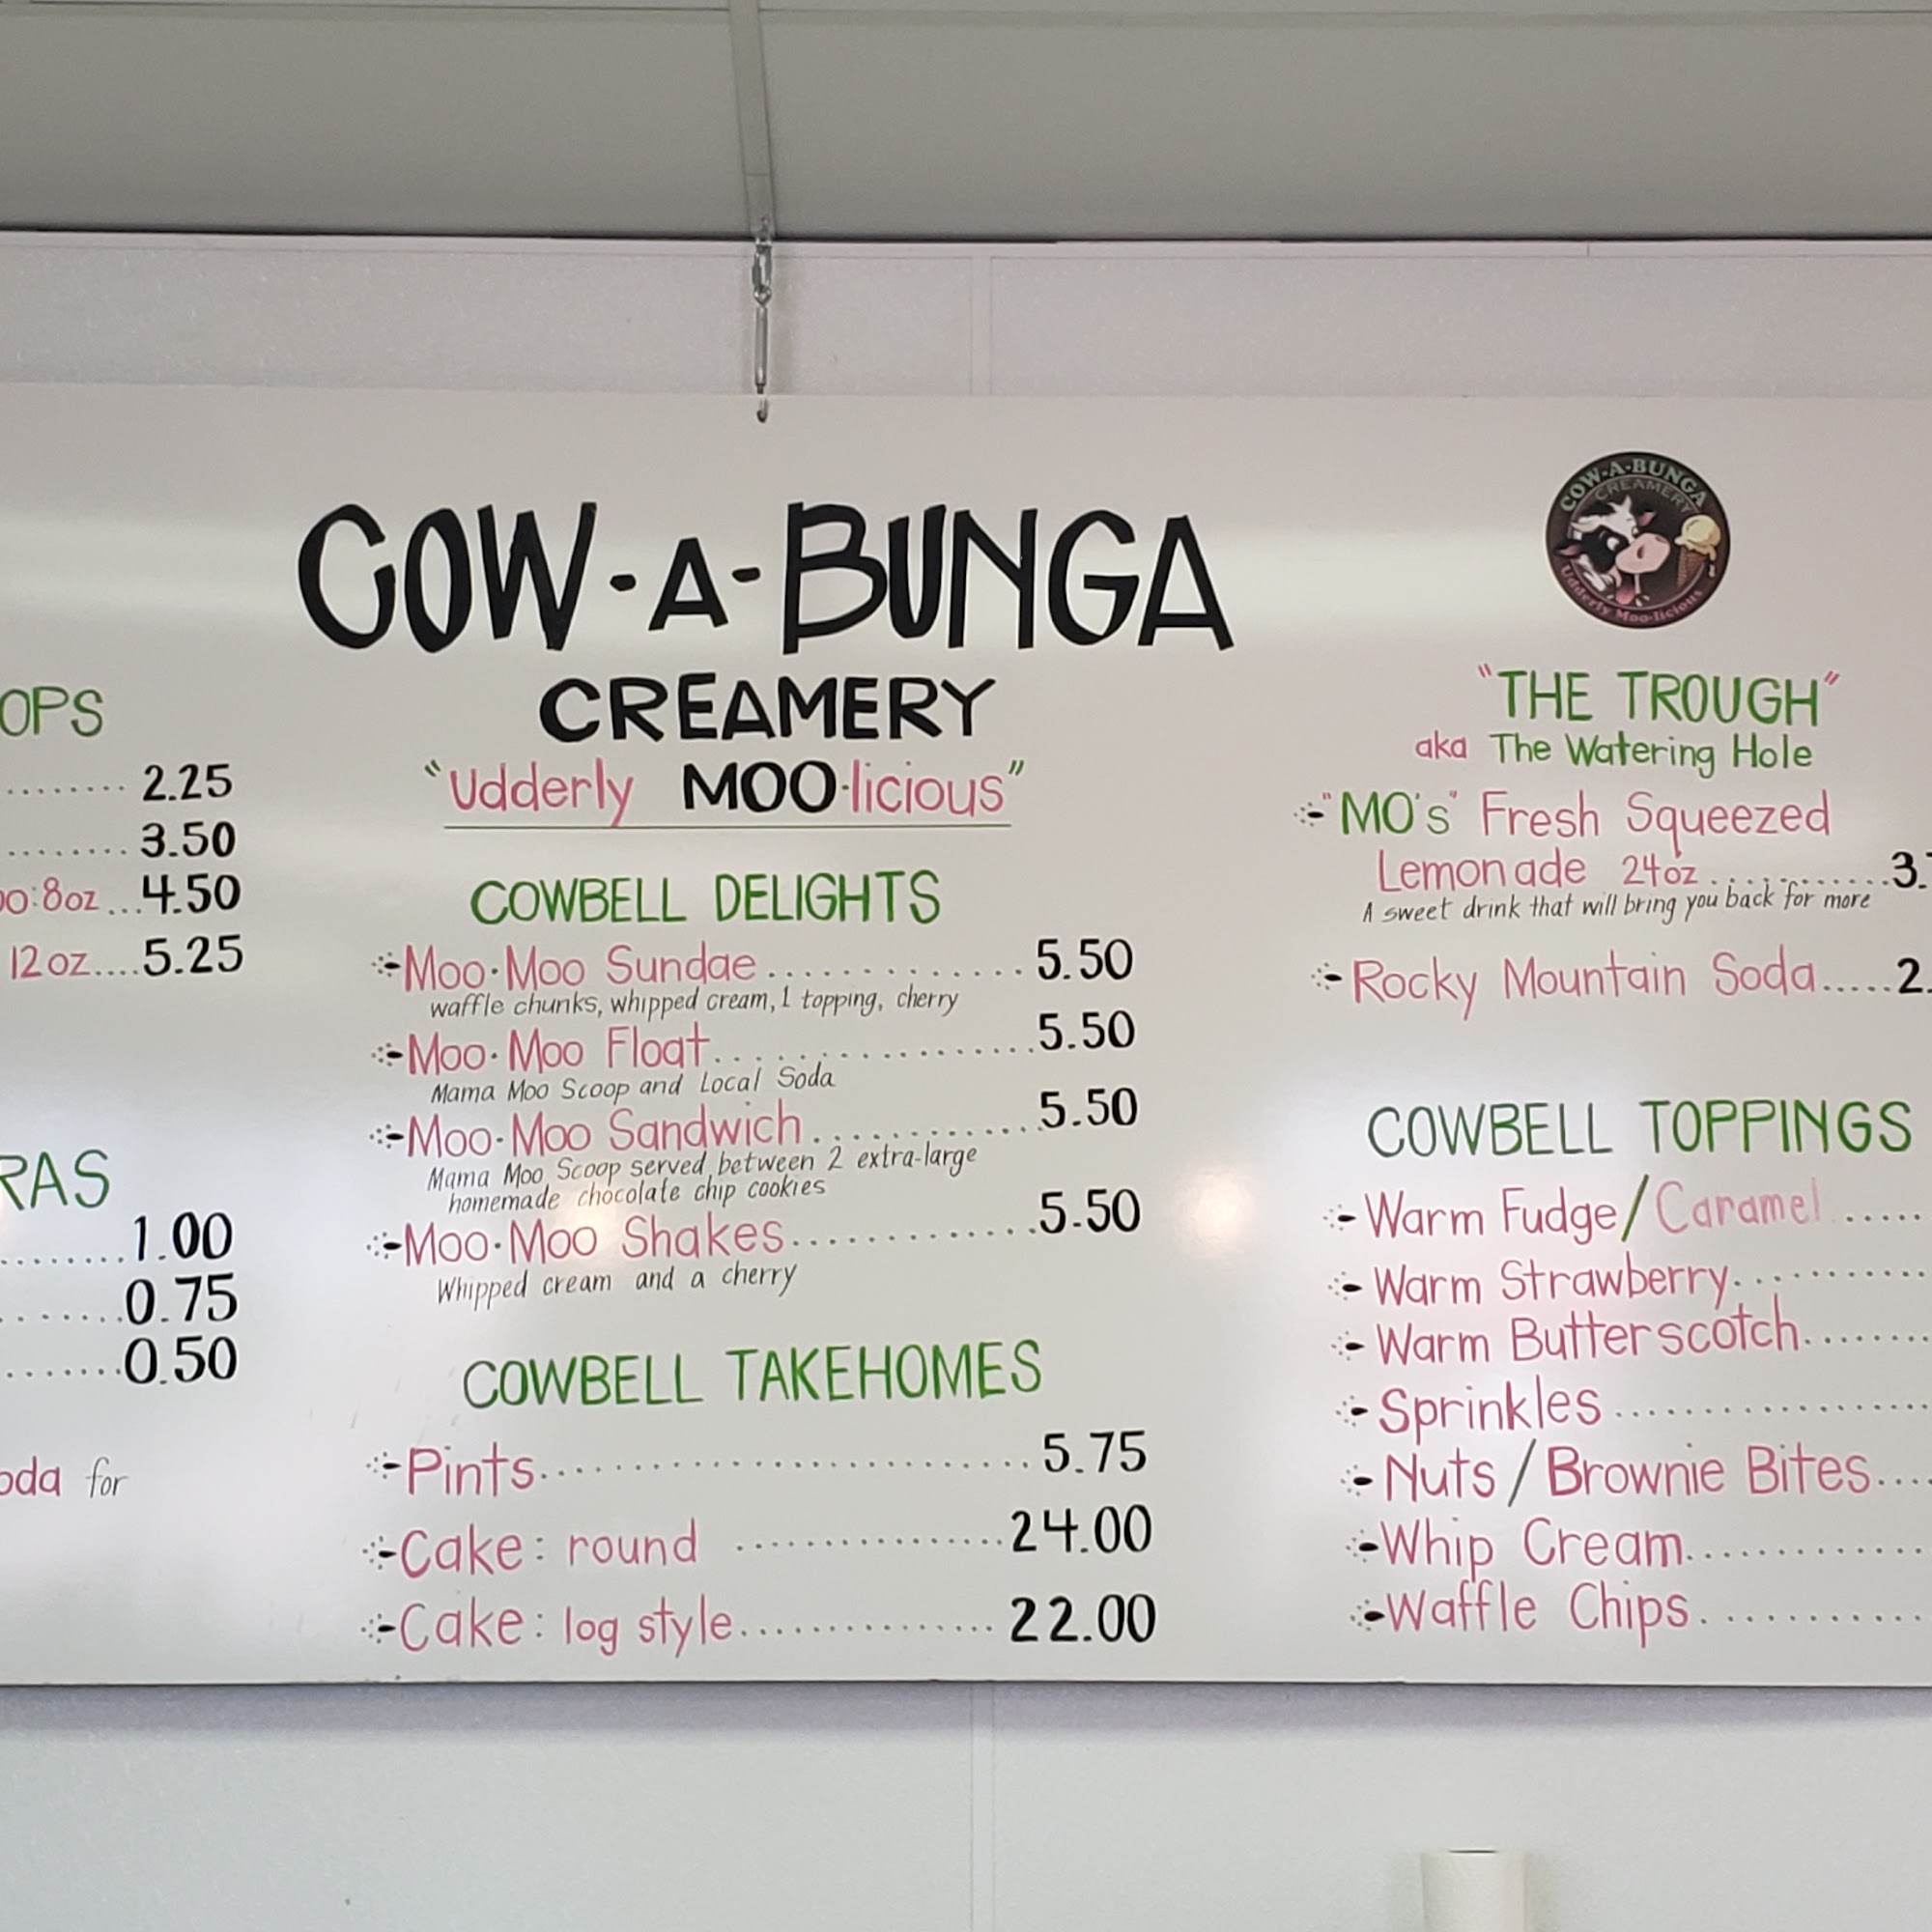 COW-A-BUNGA
CREAMERY
"Udderly MOO-licious"
COW-A-BUNGA
CREAMERY
Udderly Moo-licious
2.25
3.50
8oz...4.50
12oz....5.25
1.00
0.75
0.50
for
COWBELL DELIGHTS
Moo-Moo Sundae.............5.50
waffle chunks, whipped cream, 1 topping, cherry
Moo-Moo Float.................5.50
Mama Moo Scoop and Local Soda
Moo-Moo Sandwich............5.50
Mama Moo Scoop served between 2 extra-large
homemade chocolate chip cookies
Moo-Moo Shakes.............5.50
Whipped cream and a cherry
COWBELL TAKEHOMES
Pints..........................5.75
Cake: round ................24.00
Cake: log style...............22.00
"THE TROUGH"
aka The Watering Hole
"MO's" Fresh Squeezed
Lemonade 24oz...........3.
A sweet drink that will bring you back for more
Rocky Mountain Soda.....2.
COWBELL TOPPINGS
Warm Fudge/Caramel.....
Warm Strawberry...........
Warm Butterscotch........
Sprinkles..................
Nuts/Brownie Bites....
Whip Cream.............
Waffle Chips............